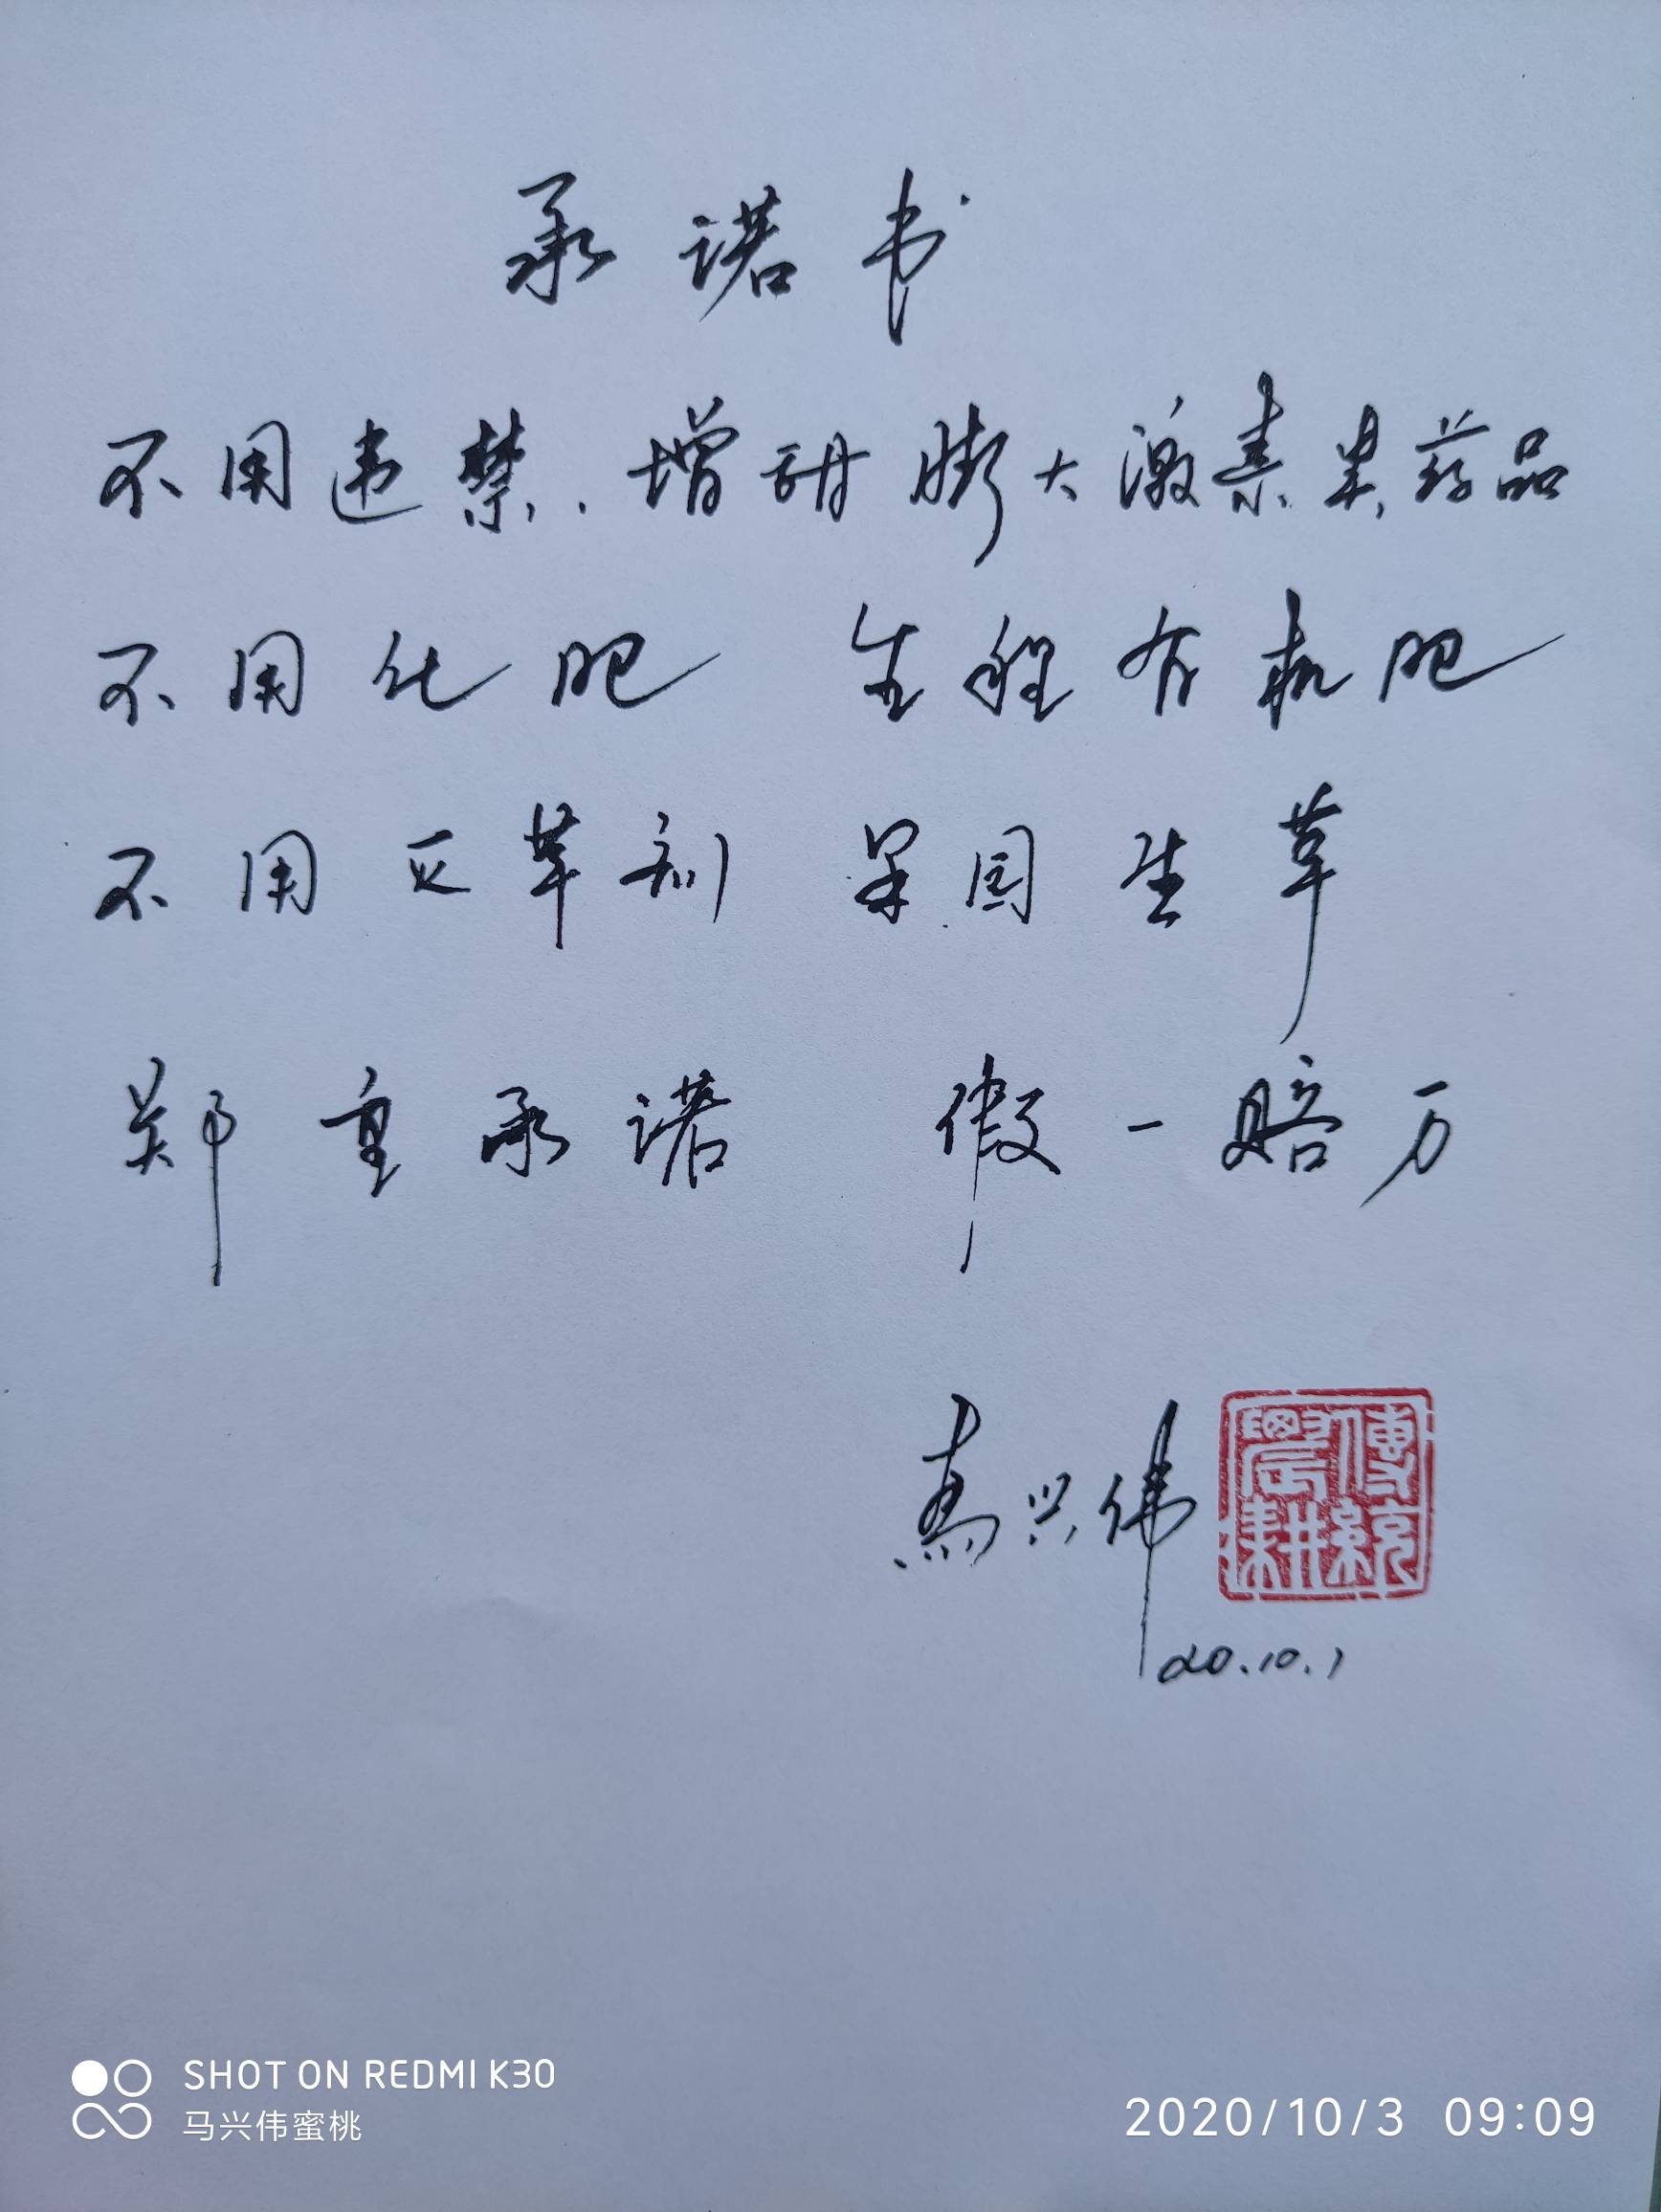 承诺书
不用违禁.增甜膨大激素类药品
不用化肥 全程有机肥
不用灭草剂 果园生草
郑重承诺 假一赔万
马兴伟
傳統農耕
20.10.1
SHOT ON REDMI K30
马兴伟蜜桃
2020/10/3 09:09